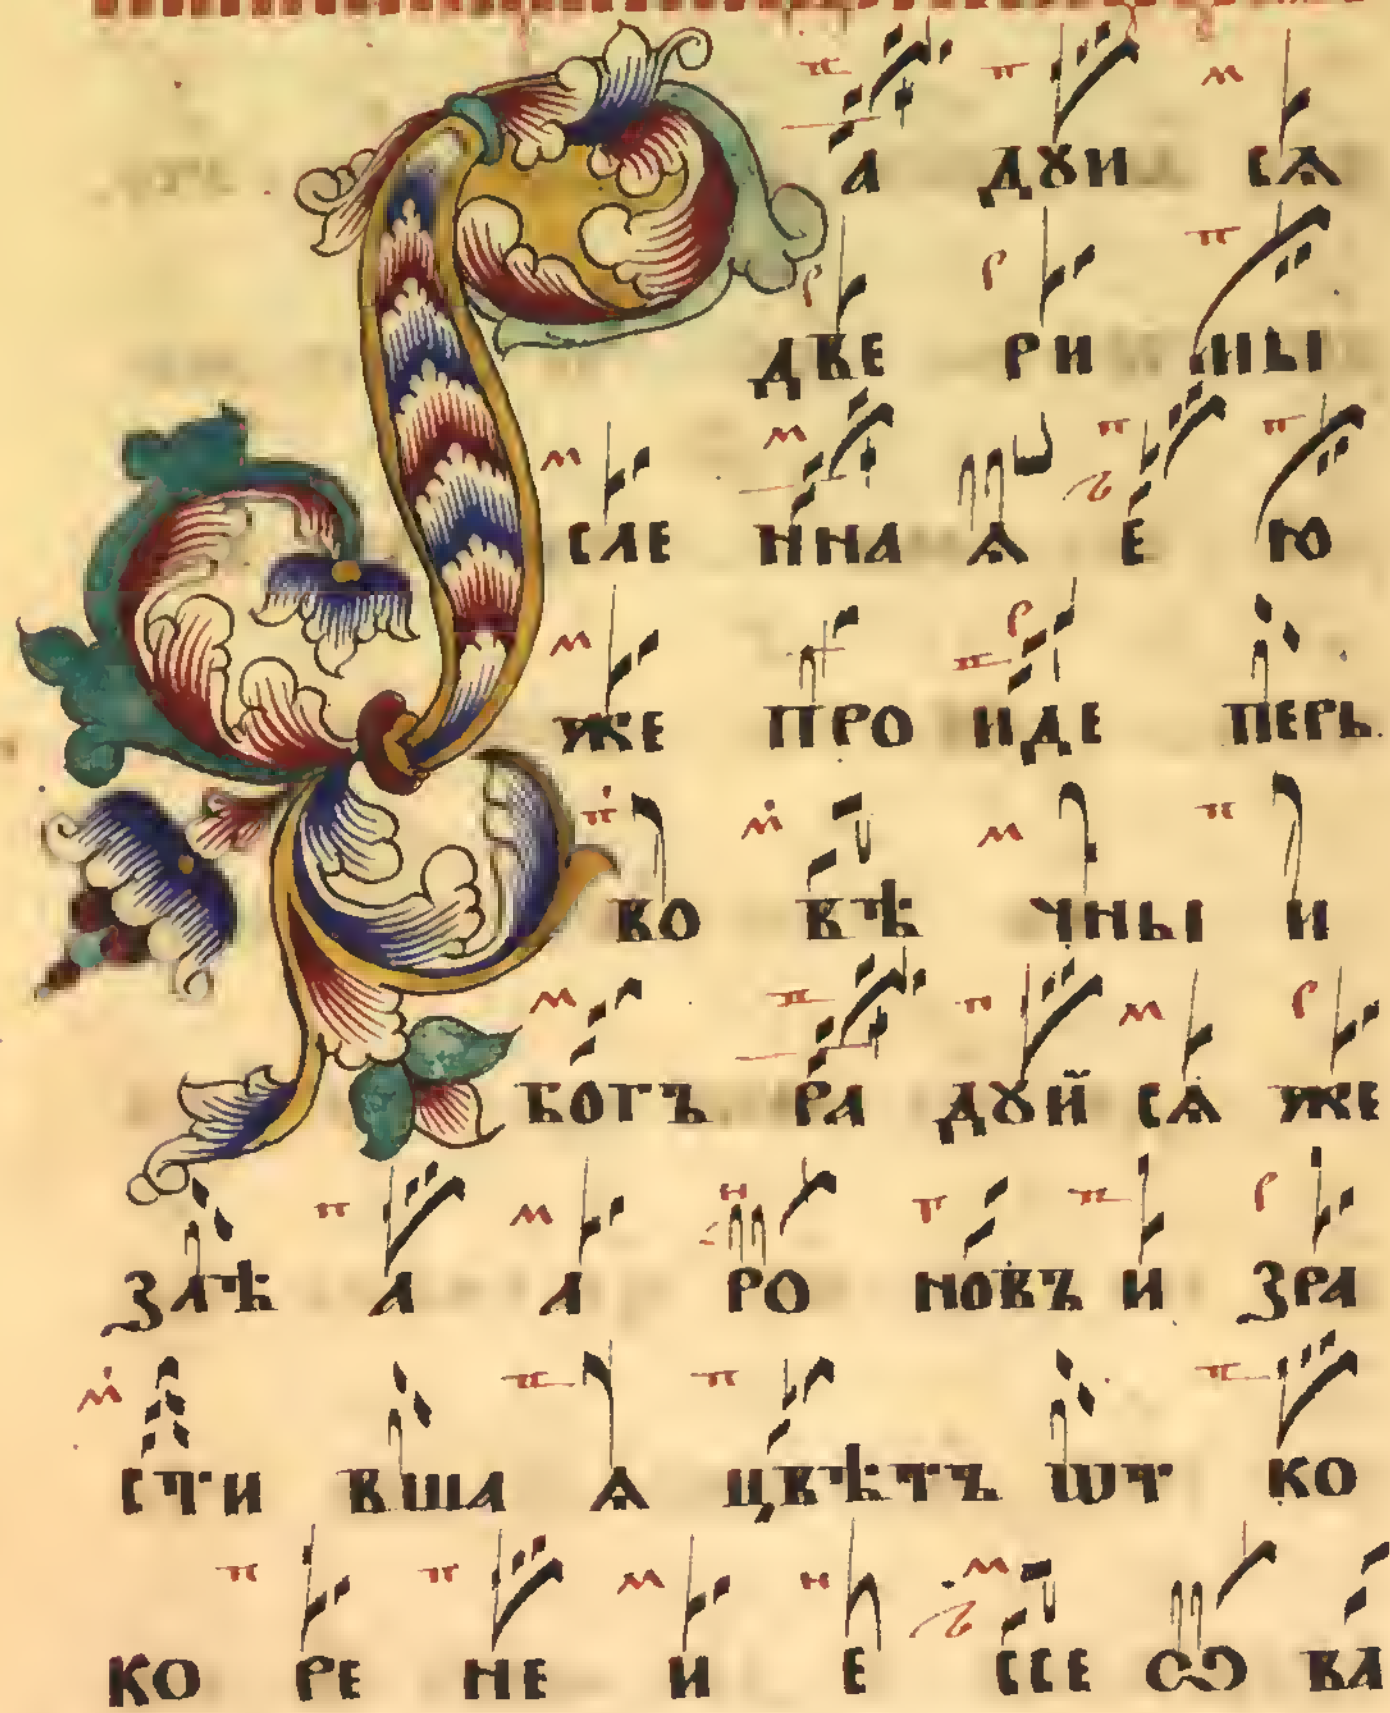 Ра дꙋи сѧ
две ри ны
сле нна ѧ е ю
же про иде перь
во вѣ чны и
богъ ра дꙋй сѧ же
злѣ а а ро новъ и зра
сти вша ѧ цвѣтъ ѿт ко
ко ре не и е ссе ѽ ва